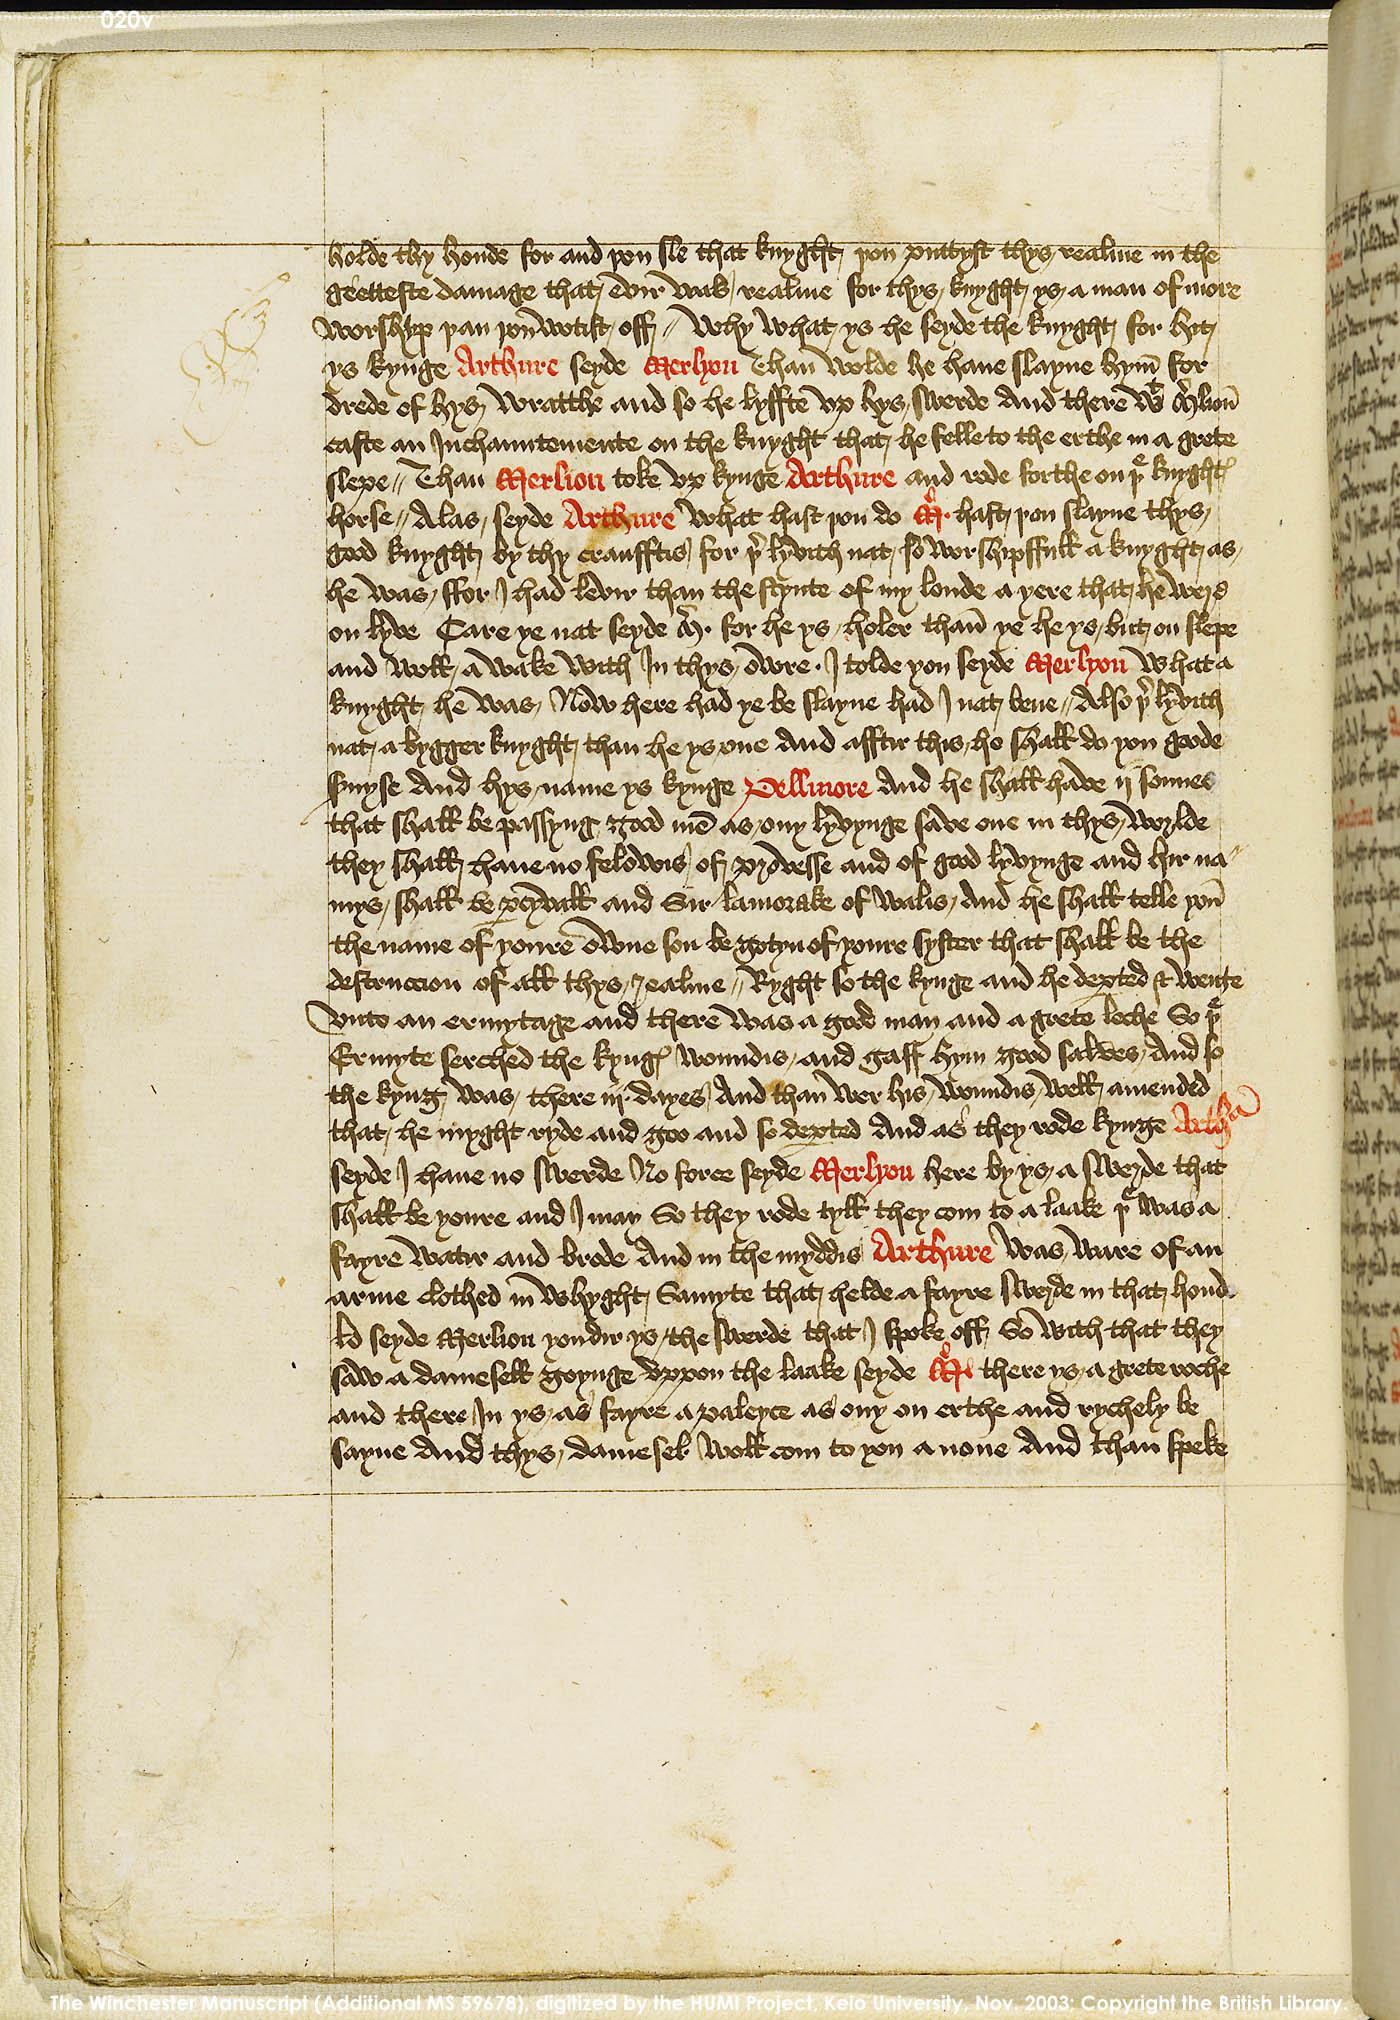 020v
holde thy honde for and þou sle that knyght þou puttyst thys realme in the
grettefte damage that evir was realme for thys knyght ys a man of more
worshipp þan þou wotist off // Why what ys he seyde the knyght for hit
ys kynge Arthure seyde Merlyon Than wolde he haue slayne hym for
drede of hys wratthe and so he lyffte vp hys swerde And there wͭ Mͬlion
caste an Inchauntemente on the knyght that he felle to the erthe in a grete
slepe // Than Merlion toke vp kynge Arthure and rode forthe on þͤ knyghtꝭ
horse // Alas seyde Arthure what hast þou do Mͬ. hast þou slayne thys
good knyght by thy crauftis for þͬ lyvith nat so worshipffull a knyght as
he was / ffor I had levir than the stynte of my londe a yere that he were
on lyve Care ye nat seyde Mͬ. for he ys holer than ye he ys but on slepe
and woll a wake with In thys owre. I tolde you seyde Merlyon what a
knyght he was / Now here had ye be slayne had I nat bene // Also þͬ lyvith
nat a bygger knyght than he ys one And afftir this he shall do you goode
ſuyse And hys name ys kynge Pellinore And he shall have ij sonnes
that shall be passyng good me̅ as ony lyvynge save one in thys worlde
they shall haue no felowis of prowesse and of good lyvynge and hir na⸗
mys shall be pcyvall and Sir lamorake of walis / And he shall telle you
the name of youre owne son be gotyn of youre syster that shall be the
destruccion of all thys realme // Ryght so the kynge and he depted & wente
vnto an ermytage and there was a good man and a grete leche So þͤ
Ermyte serched the kyngꝭ woundis and gaff hym good salves / And so
the kyng was there iij. dayes And than wer his woundis well amended
that he myght ryde and goo and so depted And as they rode kynge Arthͬ
seyde I haue no swerde No force seyde Merlyon here by ys a swerde that
shall be youre and I may So they rode tyll they com to a laake þͤ was a
fayre watir and brode And in the myddis Arthure was ware of an
arme clothed in whyght Samyte that helde a fayre swerde in that hond
lo seyde Merlion yondir ys the swerde that I spoke off So with that they
saw a damesell goynge vppon the laake seyde Mͬl there ys a grete roche
and there In ys as fayre a paleyce as ony on erthe and rychely be
sayne And thys damesel woll com to you a none And than speke
The Winchester Manuscript (Additional MS 59678), digitized by the HUMI Project, Keio University, Nov. 2003; Copyright the British Library.